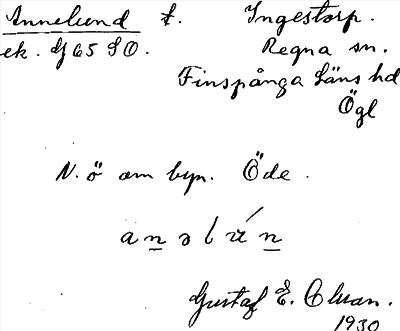 Annelund t. Ingestorp.
ek. Gf 65 SO. Regna sn.
Finspånga läns hd
Ögl
N. ö om byn. Öde.
anəlʉ́n
Gustaf E.
1930